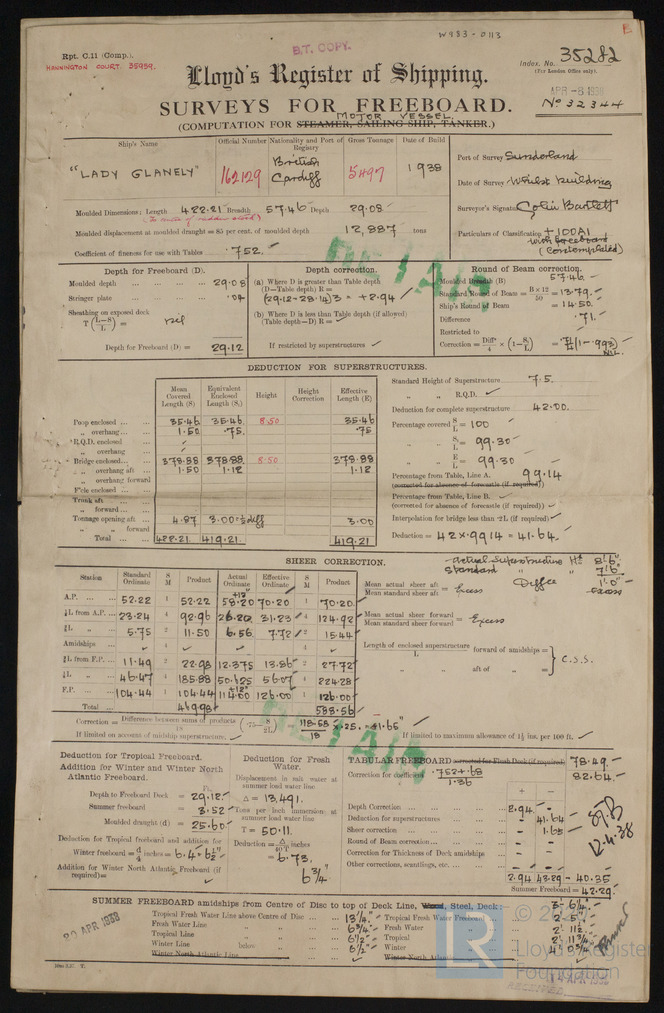 W983-0113
Rpt. C.11 (Comp.).
B.T. COPY.
HANNINGTON COURT. 35959.
Index. No. 35282
(For London Office only).
Lloyd's Register of Shipping.
APR -8 1938
No 32344
SURVEYS FOR FREEBOARD.
MOTOR VESSEL.
(COMPUTATION FOR STEAMER, SAILING SHIP, TANKER.)
Ship's Name
Official Number
Nationality and Port of Registry
Gross Tonnage
Date of Build
"LADY GLANELY"
162129
British Cardiff
5497
1938
Port of Survey Sunderland
Date of Survey Whilst building
Surveyor's Signature Colin Bartlett
Particulars of Classification +100A1
with freeboard
(Contemplated)
Moulded Dimensions: Length 422.21 Breadth 57.46 Depth 29.08
Moulded displacement at moulded draught = 85 per cent. of moulded depth 12,887 tons
Coefficient of fineness for use with Tables .752.
Depth for Freeboard (D).
Moulded depth 29.08
Stringer plate .04
Sheathing on exposed deck
T (L-S/L) =
Depth for Freeboard (D) = 29.12
Depth correction.
(a) Where D is greater than Table depth
(D—Table depth) R =
(29.12-28.14)3 = +2.94
(b) Where D is less than Table depth (if allowed)
(Table depth—D) R =
If restricted by superstructures
Round of Beam correction.
Moulded Breadth (B) 57.46
Standard Round of Beam = B×12/50 = 13.79
Ship's Round of Beam = 14.50
Difference .71
Restricted to
Correction = Diffce/4 × (1-S₁/L) = .71/4 (1-.993)
NIL.
DEDUCTION FOR SUPERSTRUCTURES.
Mean Covered Length (S)
Equivalent Enclosed Length (S₁)
Height
Height Correction
Effective Length (E)
Poop enclosed 35.46 35.46 8.50 35.46
„ overhang 1.50 .75 .75
R.Q.D. enclosed
„ overhang
Bridge enclosed 378.88 378.88 8.50 378.88
„ overhang aft 1.50 1.12 1.12
„ overhang forward
F'cle enclosed
Trunk aft
„ forward
Tonnage opening aft 4.87 3.00 ½ diff 3.00
„ „ forward
Total 422.21 419.21 419.21
Standard Height of Superstructure 7.5.
„ „ R.Q.D.
Deduction for complete superstructure 42.00.
Percentage covered S/L = 100
„ „ S₁/L = 99.30
„ „ E/L = 99.30
Percentage from Table, Line A. 99.14
(corrected for absence of forecastle (if required))
Percentage from Table, Line B.
(corrected for absence of forecastle (if required))
Interpolation for bridge less than .2L (if required)
Deduction = 42 × .9914 = 41.64.
SHEER CORRECTION.
Station
Standard Ordinate
S M
Product
Actual Ordinate
Effective Ordinate
S M
Product
A.P. 52.22 1 52.22 +12" 58.20 70.20 1 70.20
⅙L from A.P. 23.24 4 92.96 26.20 31.23 4 124.92
⅓L „ 5.75 2 11.50 6.56 7.72 2 15.44
Amidships 4 4
⅓L from F.P. 11.49 2 22.98 12.375 13.86 2 27.72
⅙L „ 46.47 4 185.88 50.625 56.07 4 224.28
F.P. 104.44 1 104.44 +12" 114.00 126.00 1 126.00
Total 469.98 588.56
Actual Superstructure Ht 8'6"
Standard „ „ 7'6"
Diffce 1'0" excess
Mean actual sheer aft
Mean standard sheer aft = Excess
Mean actual sheer forward
Mean standard sheer forward = Excess
Length of enclosed superstructure forward of amidships =
L
„ aft of „ =
C.S.S.
Correction = Difference between sums of products/18 (.75-S/2L) = 118.58/18 × .25 = 1.65"
If limited on account of midship superstructure.
If limited to maximum allowance of 1½ ins. per 100 ft.
Deduction for Tropical Freeboard.
Addition for Winter and Winter North Atlantic Freeboard.
Depth to Freeboard Deck = 29.12
Summer freeboard = 3.52
Moulded draught (d) = 25.60
Deduction for Tropical freeboard and addition for
Winter freeboard = d/4 inches = 6.4 = 6½"
Addition for Winter North Atlantic Freeboard (if required) =
Deduction for Fresh Water.
Displacement in salt water at summer load water line
Δ = 13,491.
Tons per inch immersion at summer load water line
T = 50.11.
Deduction = Δ/40T inches
= 6.73.
6¾"
TABULAR FREEBOARD corrected for Flush Deck (if required) 78.49
Correction for coefficient .752+.68/1.36 82.64
+ -
Depth Correction 2.94 -
Deduction for superstructures - 41.64
Sheer correction - 1.65
Round of Beam correction - -
Correction for Thickness of Deck amidships - -
Other corrections, scantlings, etc. - -
2.94 43.29 - 40.35
Summer Freeboard = 42.29
12.4.38
SUMMER FREEBOARD amidships from Centre of Disc to top of Deck Line, Wood, Steel, Deck: 3' 6¼"
Tropical Fresh Water Line above Centre of Disc 13¼"
Fresh Water Line „ „ 6¾"
Tropical Line „ „ 6½"
Winter Line below „ 6½"
Winter North Atlantic Line „ „
Tropical Fresh Water Freeboard 2' 5"
Fresh Water „ 2' 11½"
Tropical „ 2' 11¾"
Winter „ 4' 0¾"
Winter North Atlantic „
20 APR 1938
© 20
LR
Lloyd's Register
Foundation
RECEIVED
APR 1938